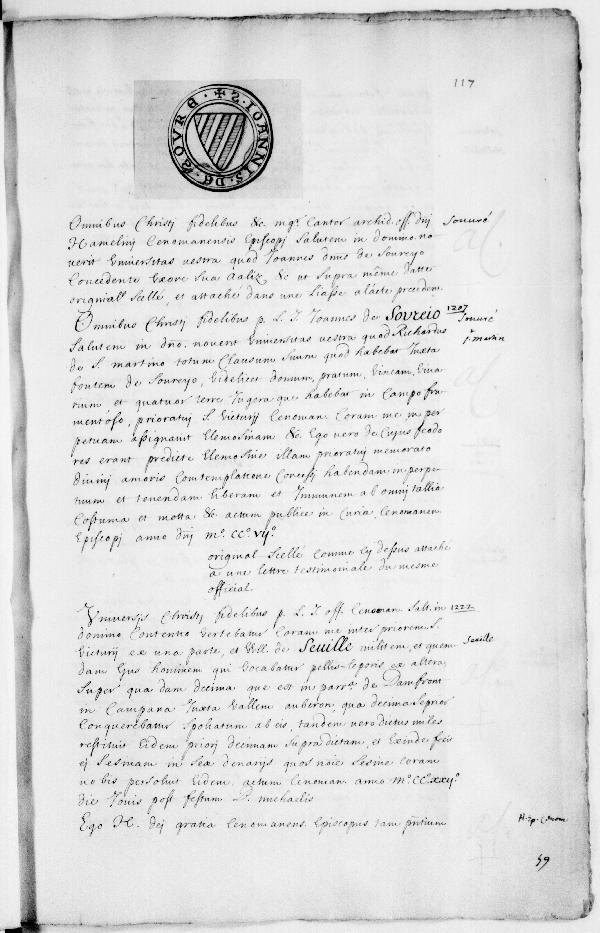 117
✠ S. IOANNIS. DE. SOVRE
Omnibus Christj fidelibus &c. mgr. Cantor archid. off. dnj
Souuré
Hamelinj Cenomanensis Episcopj Salutem in domino. no
verit Universitas vestra quod Joannes dnus de Soureyo
Concedente Uxore Sua Aaliz &c ut Supra même datte
original Scellé, et attaché dans une liasse a lacte precedent.
Omnibus Christj fidelibus p. L. J. Joannes de Sovreio
1207
Souuré
Salutem in dno. noverit Universitas vestra quod Richardus
St martin
de S. martino totum Clausum Suum quod habebat Juxta
fontem de Soureyo, Videlicet domum, pratum, Vineam, Viva
rium, et quatuor terre Jugera que habebat in Campo fru
mentoso, prioratuj S. Victurij Cenoman. Coram me in per
petuam assignavit Elemosinam &c. Ego vero de Cujus feodo
res erant predicte Elemosine illam prioratuj memorato
divinj amoris Contemplatione Concessj habendam in perpe
tuum et tenendam liberam et Immunem ab omnj tallia
Costuma et motta &c actum publice in Curia Cenomanen.
Episcopj anno dnj m.° CC.° Vij.°
original Scellé Comme Cy dessus attaché
a une lettre testimoniale du mesme
official.
Universis Christj fidelibus p. L. J. off. Cenoman. Salt. in
1222
domino Contentio Vertebatur Coram me inter priorem S.
Victurij ex una parte, et Will. de Seuille militem, et quem
Seuille
dam Ejus hominem qui vocabatur pellis-leporis ex altera,
Super qua dam decima que est in parr. de Damfront
in Campana Juxta Vallem auberon, qua decima Se prior
Conquerebatur Spoliatum ab eis, tandem vero dictus miles
restituit Eidem priorj decimam Supradictam, et Exinde fecit
ej Sesinam in Sex denarijs quos noie Sesine coram
nobis persolvit Eidem. actum Cenoman. anno m.° CC.° xxij.°
die Jovis post festum S. michaelis
Ego H. dej gratia Cenomanens. Episcopus tam
59